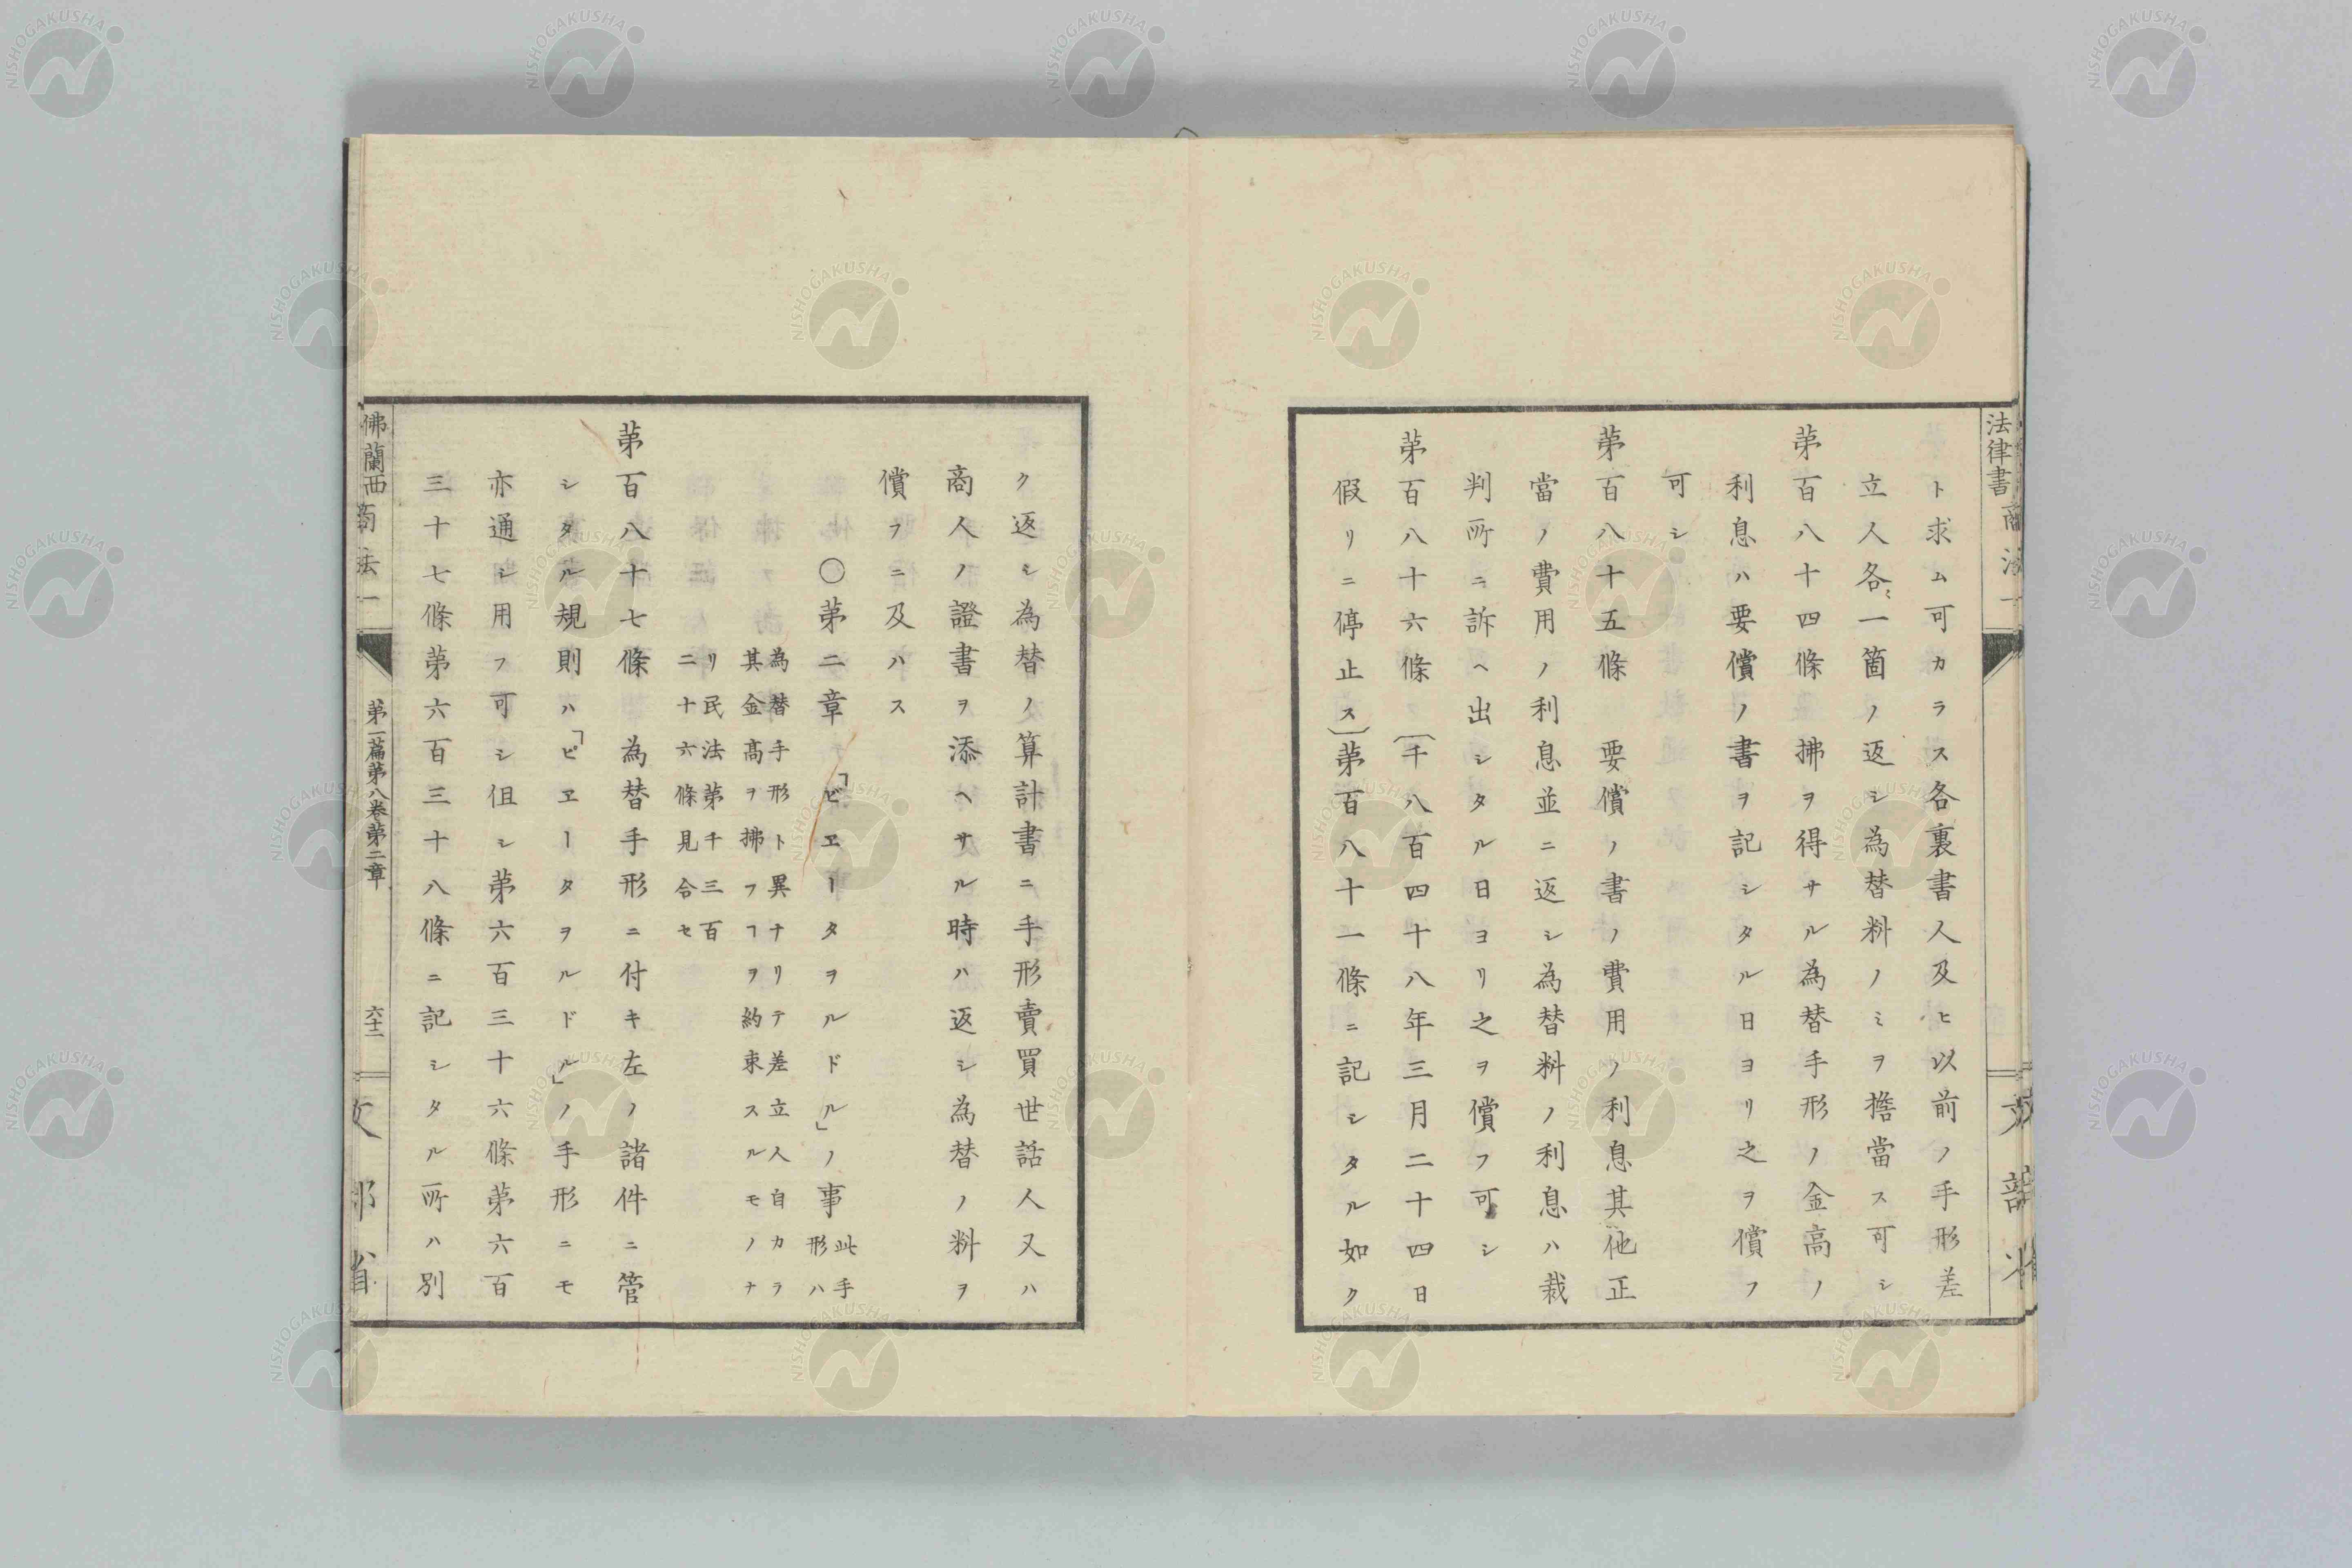 法律書 商法 一
ト求ム可カラス各裏書人及ヒ以前ノ手形差
立人各〻一箇ノ返シ為替料ノミヲ擔當ス可シ
第百八十四條 拂ヲ得サル為替手形ノ金高ノ
利息ハ要償ノ書ヲ記シタル日ヨリ之ヲ償フ
可シ
第百八十五條 要償ノ書ノ費用ノ利息其他正
當ノ費用ノ利息並ニ返シ為替料ノ利息ハ裁
判所ニ訴ヘ出シタル日ヨリ之ヲ償フ可シ
第百八十六條 (千八百四十八年三月二十四日
假リニ停止ス)第百八十一條ニ記シタル如ク
ク返シ為替ノ算計書ニ手形賣買世話人又ハ
商人ノ證書ヲ添ヘサル時ハ返シ為替ノ料ヲ
償フニ及ハス
○第二章 「ビヱータヲルドル」ノ事 此手形ハ
為替手形ト異ナリテ差立人自カラ
其金高ヲ拂フヿヲ約束スルモノナ
リ民法第千三百
二十六條見合セ
第百八十七條 為替手形ニ付キ左ノ諸件ニ管
シタル規則ハ「ビヱータヲルドル」ノ手形ニモ
亦通シ用フ可シ但シ第六百三十六條第六百
三十七條第六百三十八條ニ記シタル所ハ別
佛蘭西商法 一
第一篇第八卷第二章
六十二
文部省
NISHOGAKUSHA